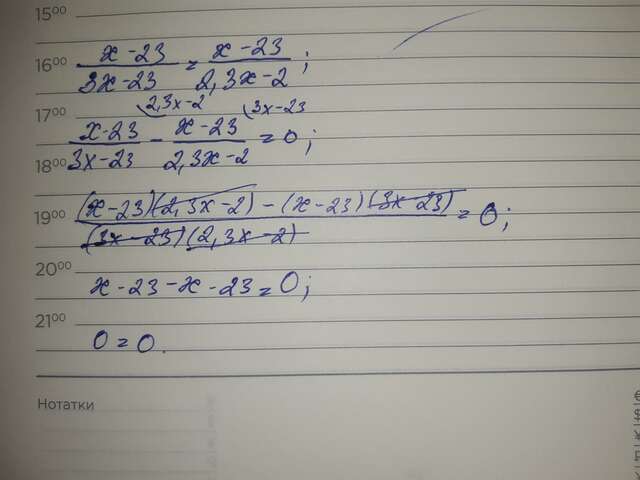 15⁰⁰
16⁰⁰ (x-23)/(3x-23) = (x-23)/(2,3x-2);
17⁰⁰ (2,3x-2 (3x-23
(x-23)/(3x-23) - (x-23)/(2,3x-2) = 0;
18⁰⁰
19⁰⁰ ((x-23)(2,3x-2) - (x-23)(3x-23))/((3x-23)(2,3x-2)) = 0;
20⁰⁰ x-23-x-23=0;
21⁰⁰ 0=0.
Нотатки